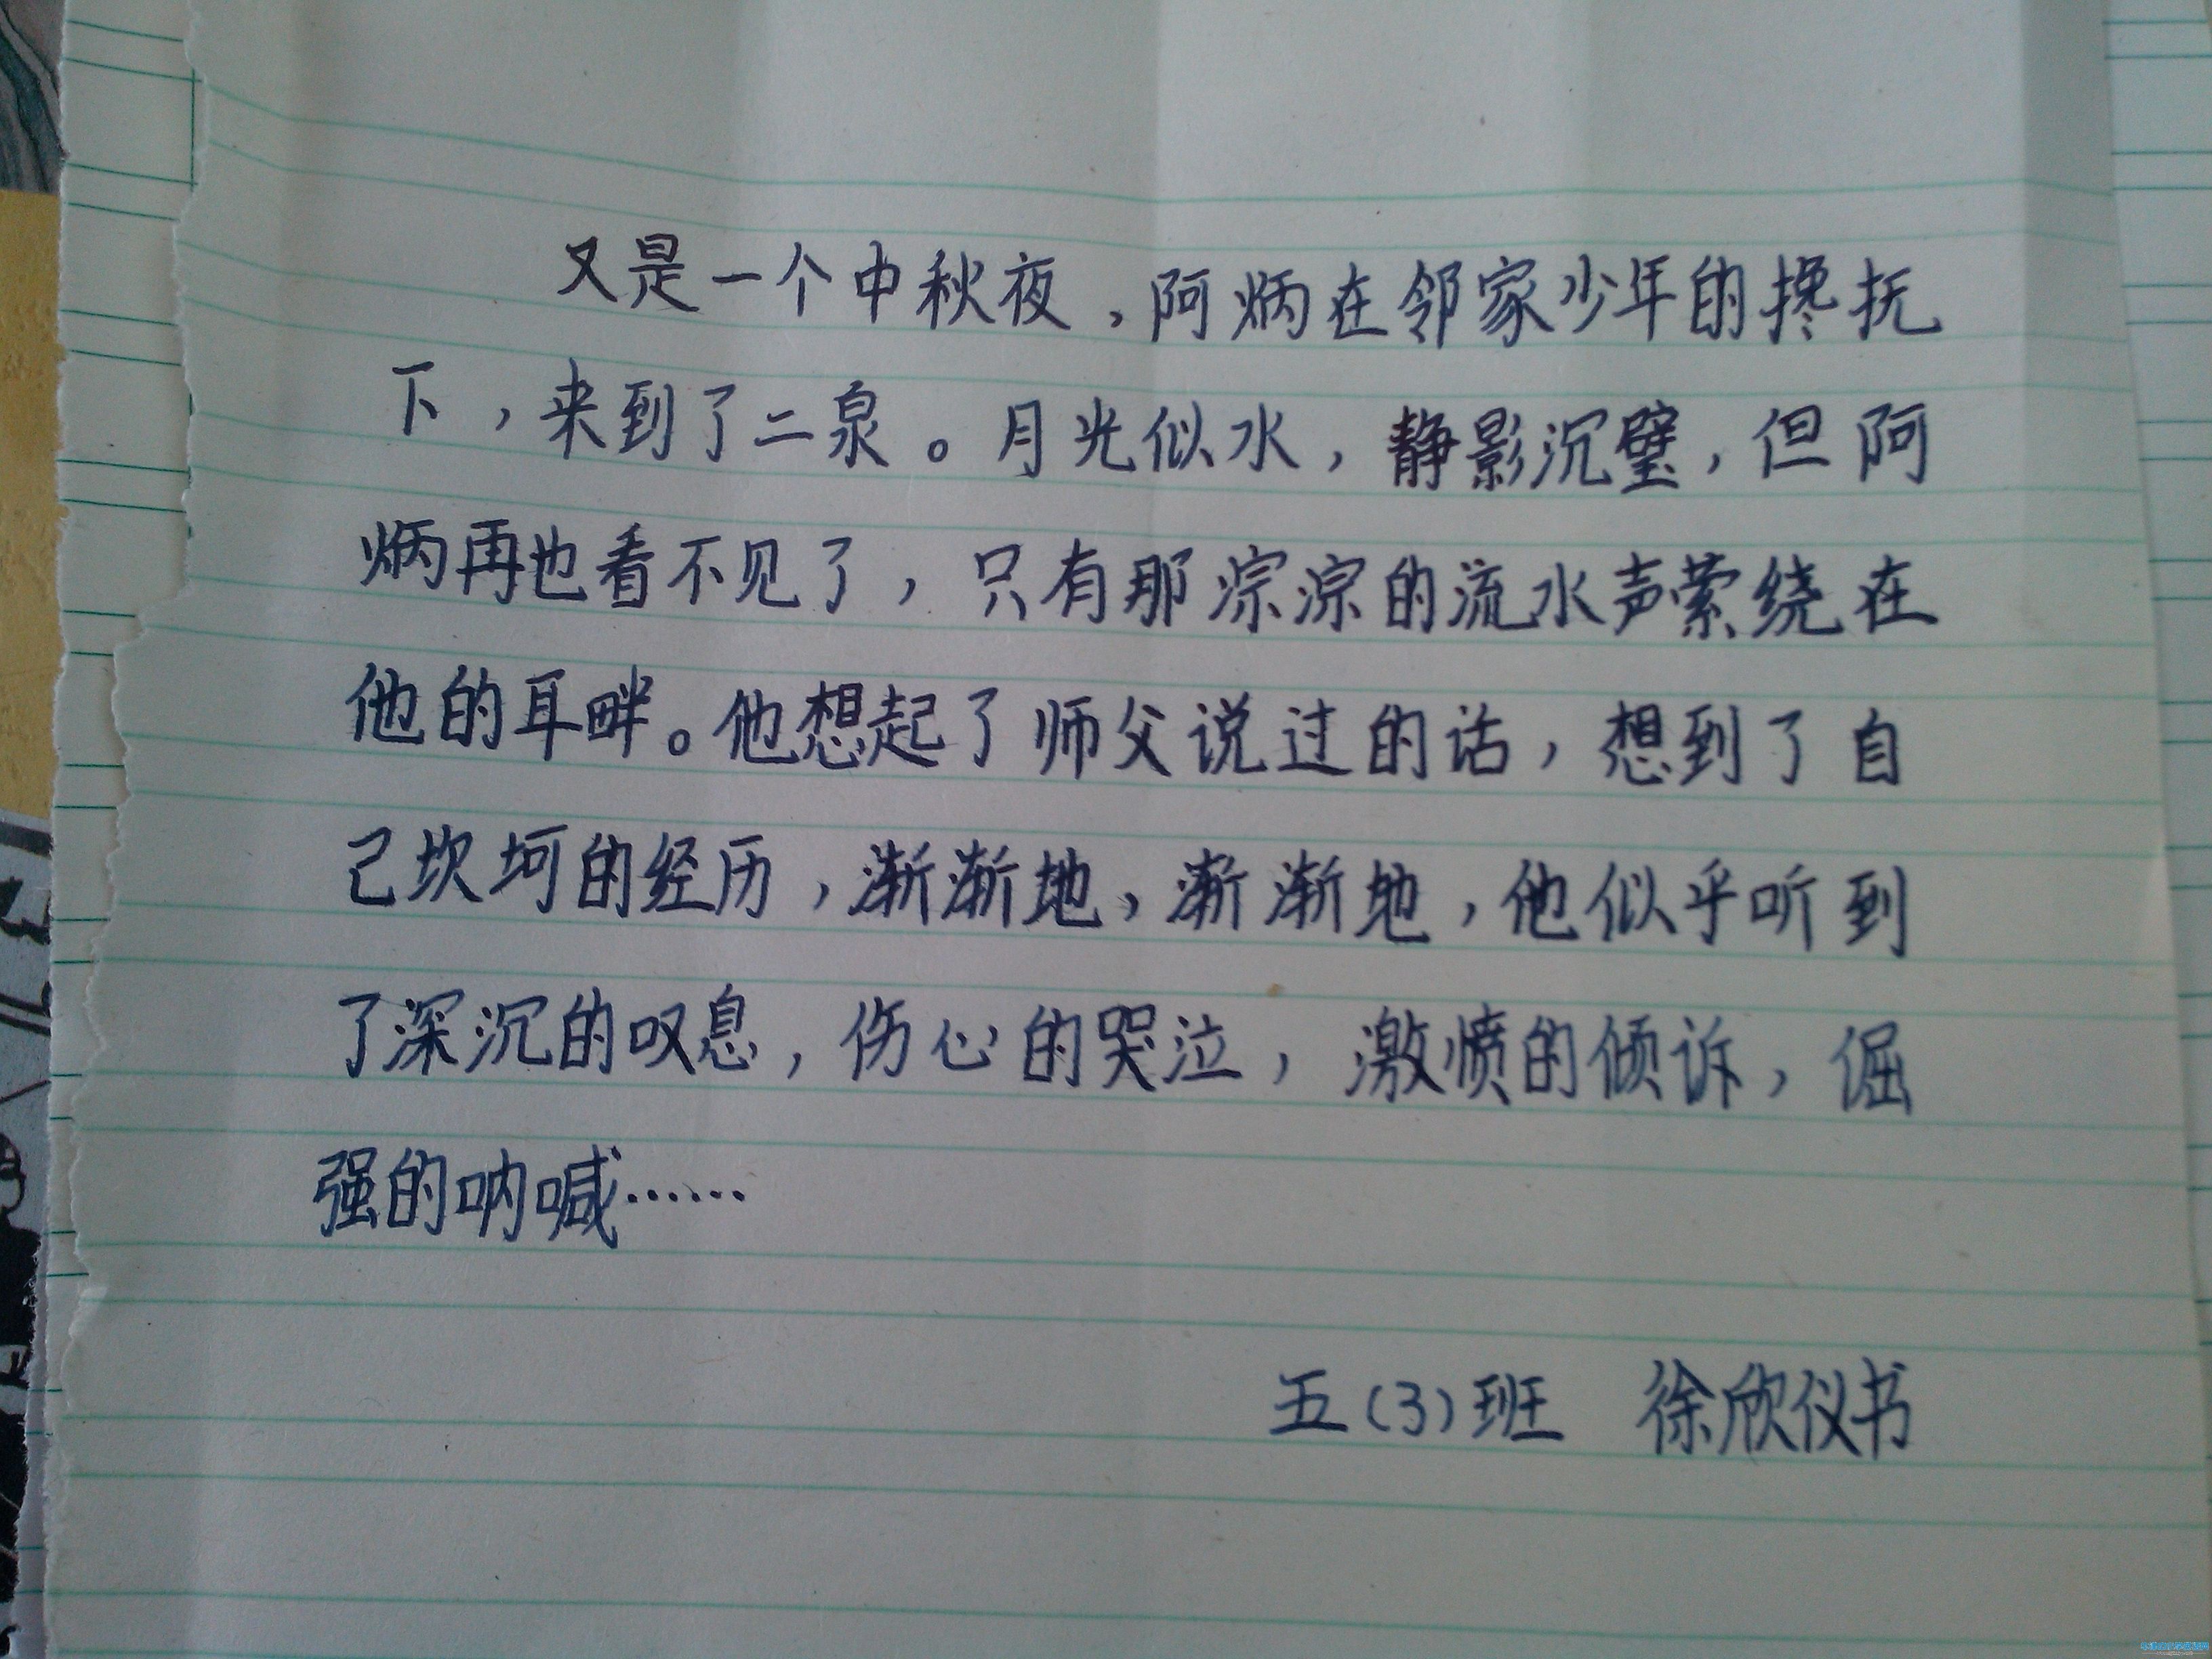 又是一个中秋夜，阿炳在邻家少年的搀抚
下，来到了二泉。月光似水，静影沉璧，但阿
炳再也看不见了，只有那淙淙的流水声萦绕在
他的耳畔。他想起了师父说过的话，想到了自
己坎坷的经历，渐渐地，渐渐地，他似乎听到
了深沉的叹息，伤心的哭泣，激愤的倾诉，倔
强的呐喊……
五(3)班 徐欣仪书